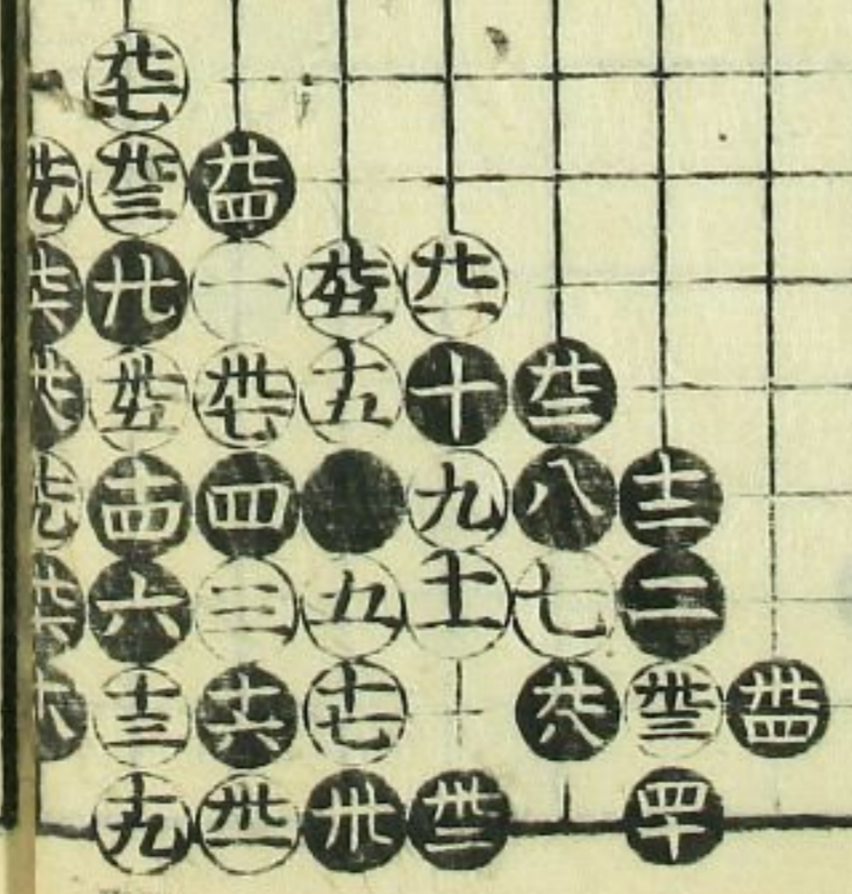 廿七
廿三 廿四
廿 一 廿五 廿一
卅五 卅七 十五 十 廿二
十四 四 九 八 十二
六 三 五 十一 七 二
十三 十六 十七 廿八 卅三 卅四
十九 卅一 卅 卅二 四十